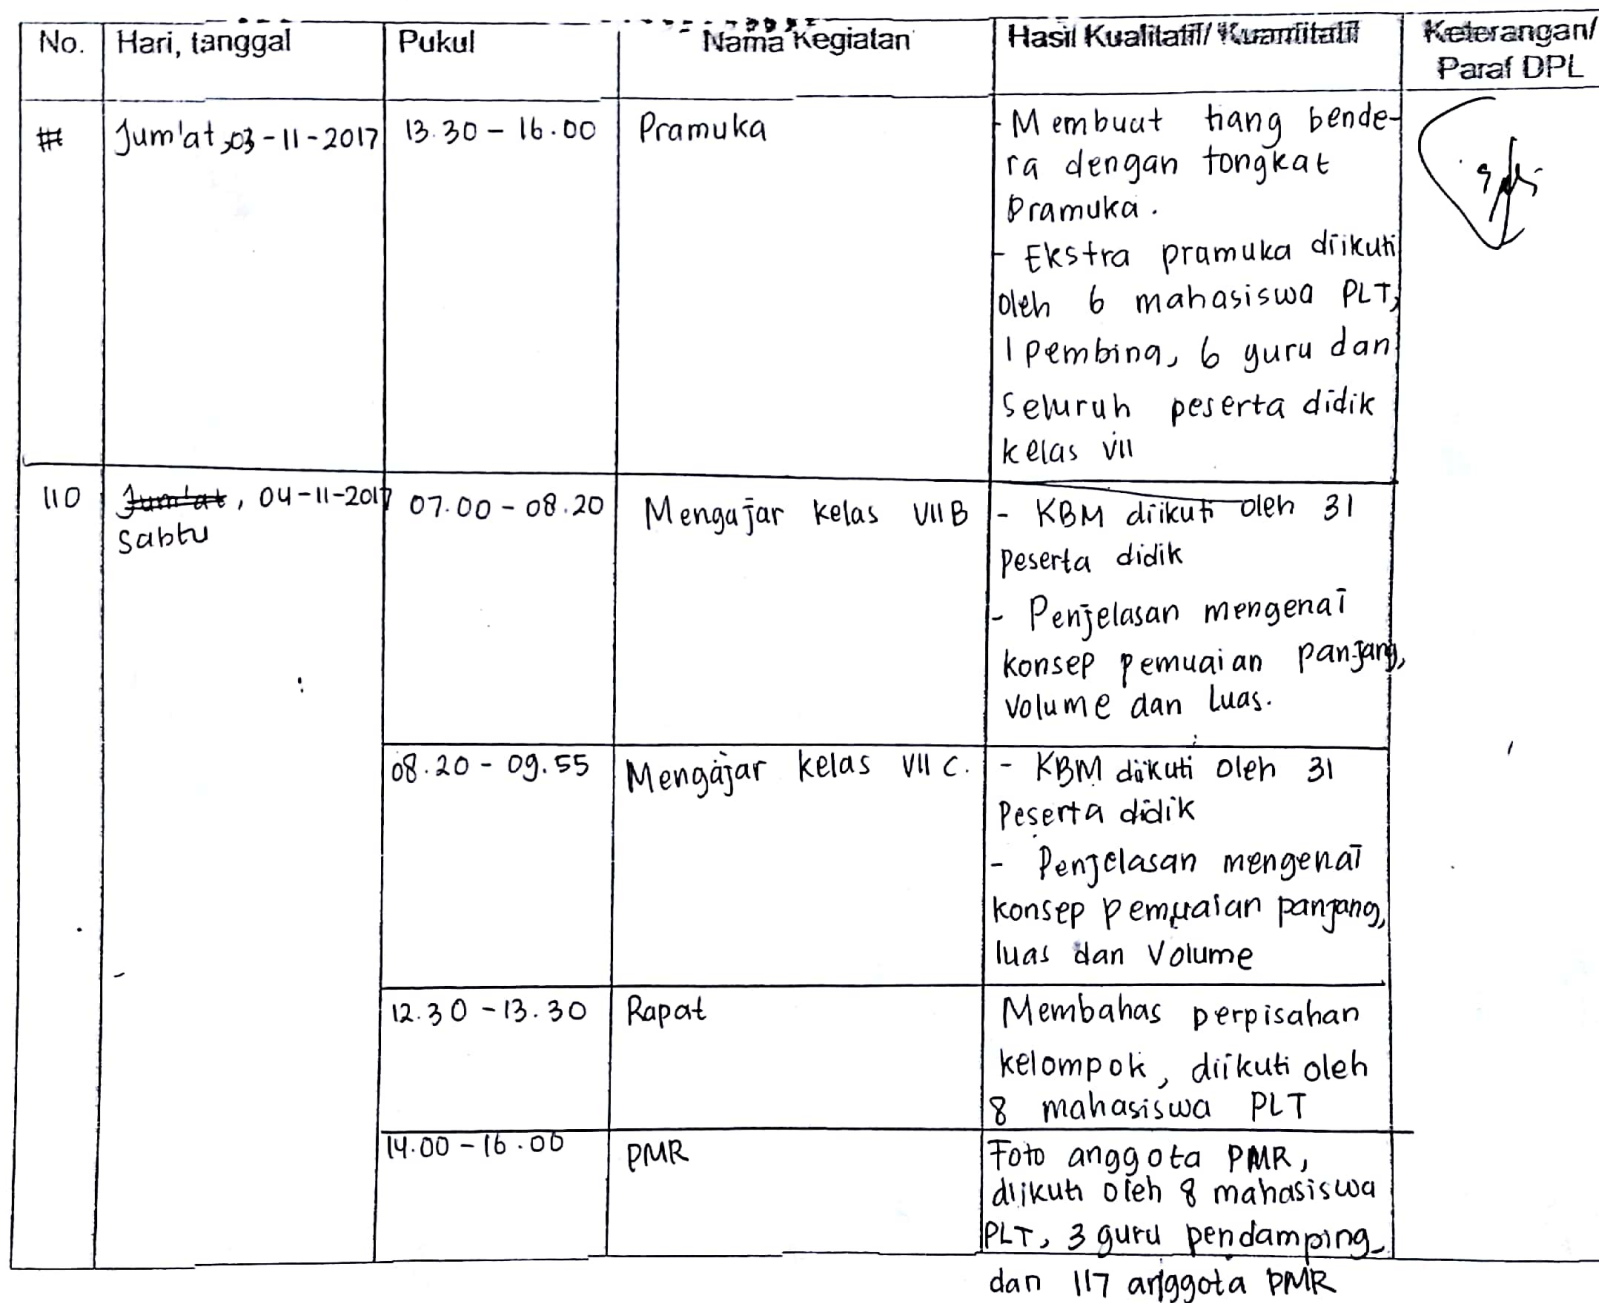 No. Hari, tanggal Pukul Nama Kegiatan Hasil Kualitatif/ Kuantitatif Keterangan/
Paraf DPL
Jum'at, 03-11-2017 13.30 - 16.00 Pramuka
- Membuat tiang bende-
ra dengan tongkat
Pramuka.
- Ekstra pramuka diikuti
oleh 6 mahasiswa PLT,
1 Pembina, 6 guru dan
Seluruh peserta didik
kelas VII
110 Jum'at, 04-11-2017 07.00 - 08.20 Mengajar kelas VII B
Sabtu
- KBM diikuti oleh 31
Peserta didik
- Penjelasan mengenai
konsep pemuaian panjang,
Volume dan Luas.
08.20 - 09.55 Mengajar kelas VII C.
- KBM diikuti oleh 31
Peserta didik
- Penjelasan mengenai
konsep pemuaian panjang,
luas dan Volume
12.30 - 13.30 Rapat
Membahas perpisahan
kelompok, diikuti oleh
8 mahasiswa PLT
14.00 - 16.00 PMR
Foto anggota PMR,
diikuti oleh 8 mahasiswa
PLT, 3 guru pendamping
dan 117 anggota PMR